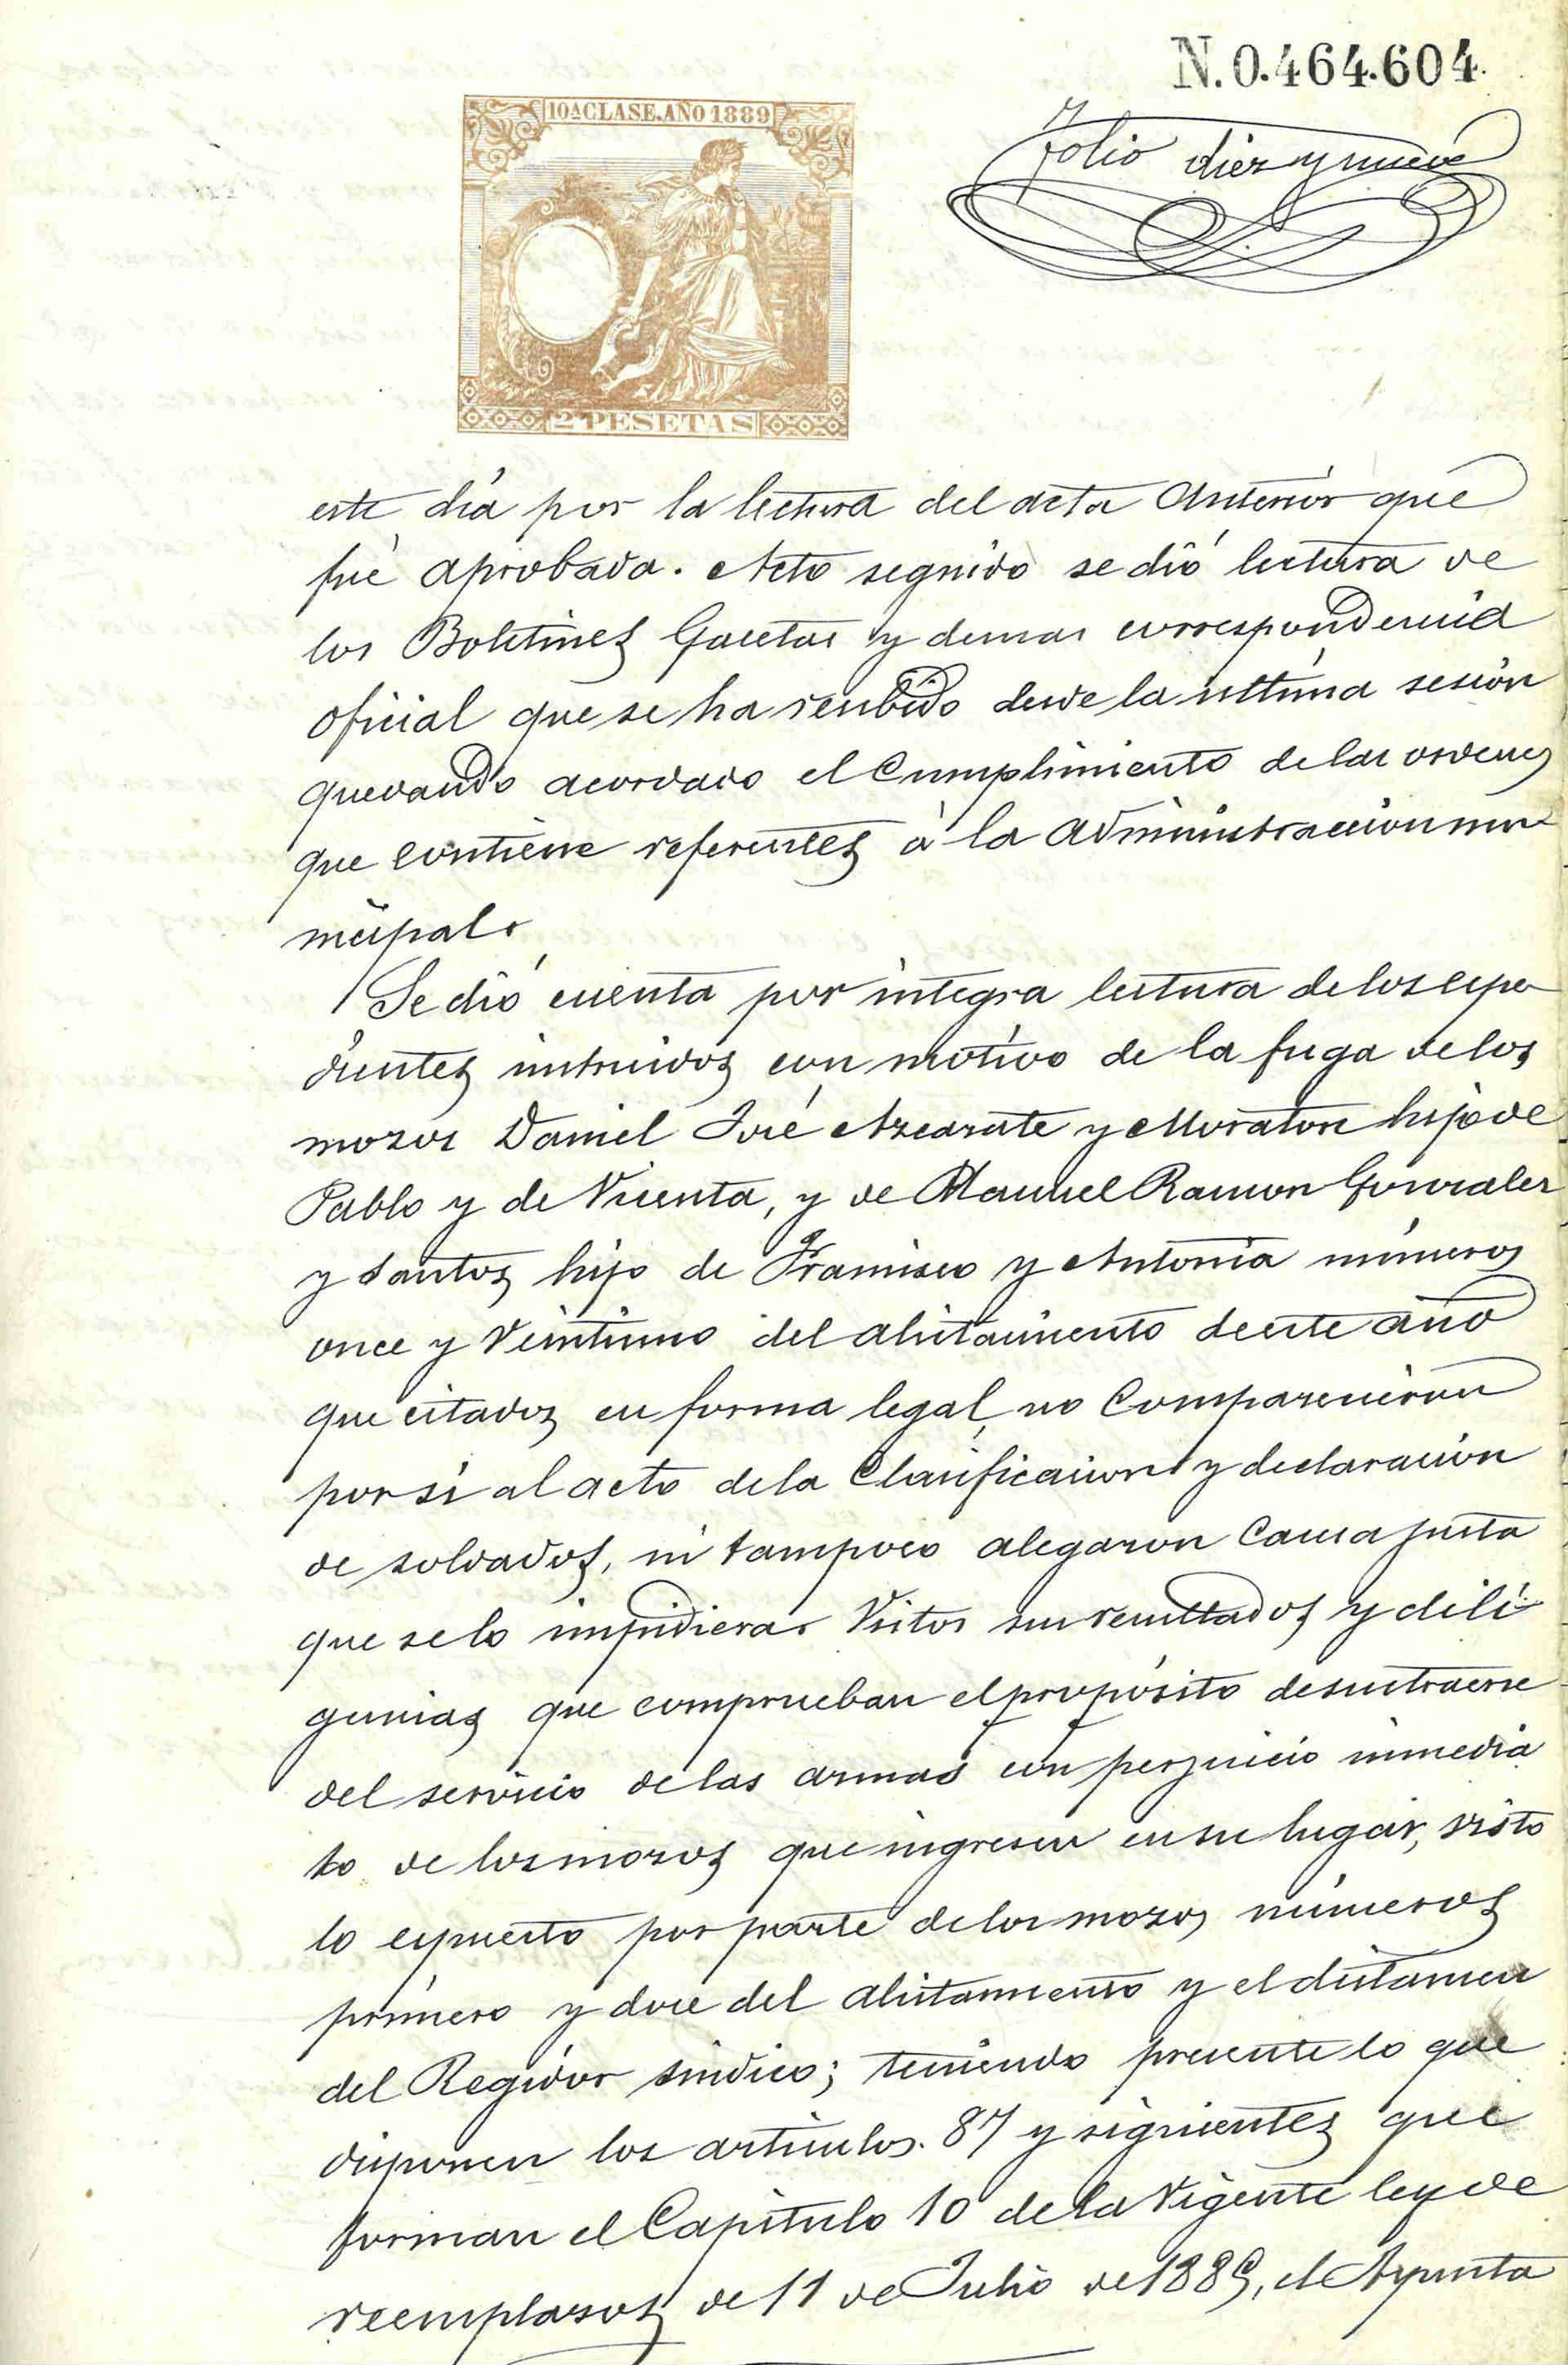 N.0.464.604
10ª CLASE. AÑO 1889
Folio diez y nueve
2 PESETAS
este día por la lectura del acta Anterior que
fué aprobada. Acto seguido se dió lectura de
los Boletines Gacetas y demas correspondencia
oficial que se ha recibido desde la ultima sesión
quedando acordado el Cumplimiento de las ordenes
que contiene referentes à la Administraccion mu
nicipal.
Se dió cuenta por integra lectura de los espe
dientes instruidos con motivo de la fuga de los
mozos Daniel José Azcarate y Moratore hijo de
Pablo y de Vicenta, y de Manuel Ramon Gonzalez
y Santos hijo de Francisco y Antonia números
once y Veintiuno del alistamiento de este año
que citados en forma legal, no Comparecieron
por sí al acto de la Clasificacion y declaración
de soldados, ni tampoco alegaron Causa justa
que se lo impidiera. Vistos sus resultados y dili
gencias que comprueban el propósito de sustraerse
del servicio de las armas con perjuicio inmedia
to de los mozos que ingresen en su lugar, visto
lo espuesto por parte de los mozos números
primero y doce del alistamiento y el dictamen
del Regidor síndico; teniendo presente lo que
disponen los articulos. 87 y siguientes que
forman el Capítulo 10 de la Vigente ley de
reemplazos de 11 de Julio de 1885, el Ayunta